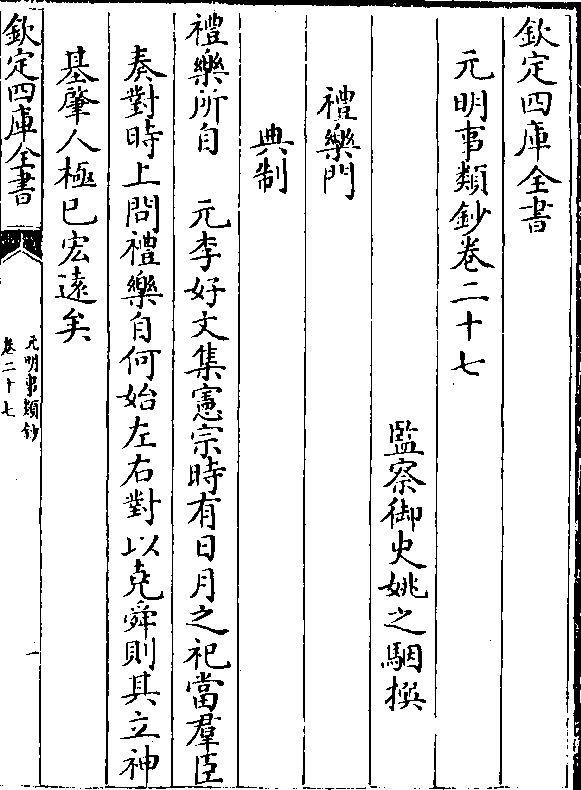 欽定四庫全書
元明事類鈔卷二十七
監察御史姚之駰撰
禮樂門
典制
禮樂所自　元李好文集憲宗時有日月之祀當羣臣
奏對時上問禮樂自何始左右對以堯舜則其立神
基肇人極已宏遠矣
欽定四庫全書
元明事類鈔
卷二十七
一